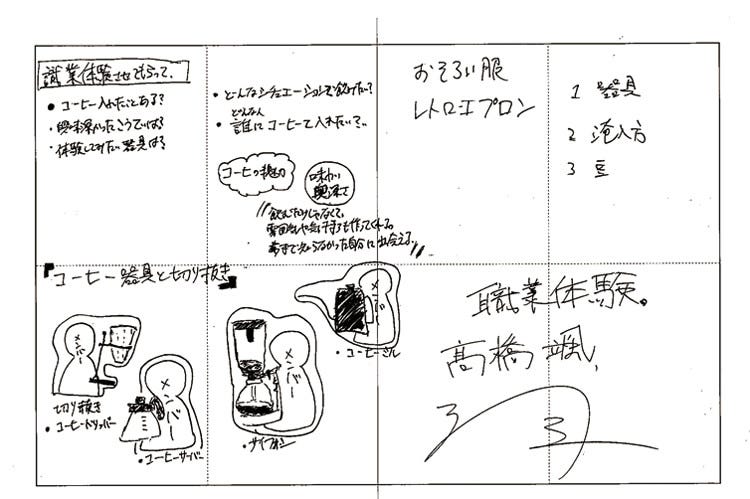 職業体験させてもらって、
● コーヒー入れたことある?
・興味深かったこうていは?
・体験してみたい器具は?
・どんなシチュエーションで飲みたい?
どんな人
・誰にコーヒーて入れたい?
コーヒーの魅力
味わい
奥深さ
飲むだけじゃなくて、
雰囲気や気持ちも作ってくれる。
自分に出会える。
おそろい服
レトロエプロン
1 器具
2 淹入方
3 豆
『コーヒー器具と切り抜き』
メンバー
切り抜き
・コーヒードリッパー
メンバー
・コーヒーサーバー
メンバー
・サイフォン
メンバー
・コーヒーミル
職業体験。
高橋 颯、
3
3